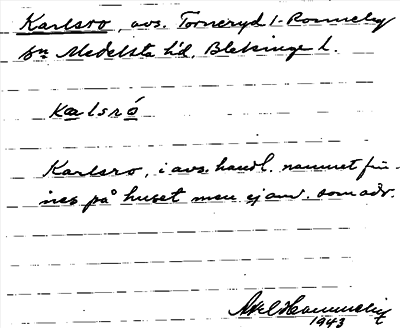 Karlsro, avs. Torneryd 1. Ronneby
sn Medelsta hd. Blekinge l.
Karlsró
Karlsro, i avs. handl. namnet fin-
nes på huset men ej anv. som adr.
Axel
1943